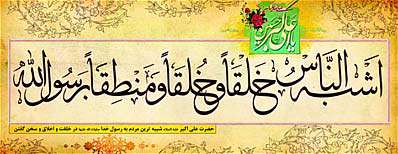 یا علی اکبر
اشبه الناس خَلقاً وخُلقاً ومنطقاً برسول الله
حضرت علی اکبر علیه السلام شبیه ترین مردم به رسول خدا خلقت و اخلاق و سخن گفتن